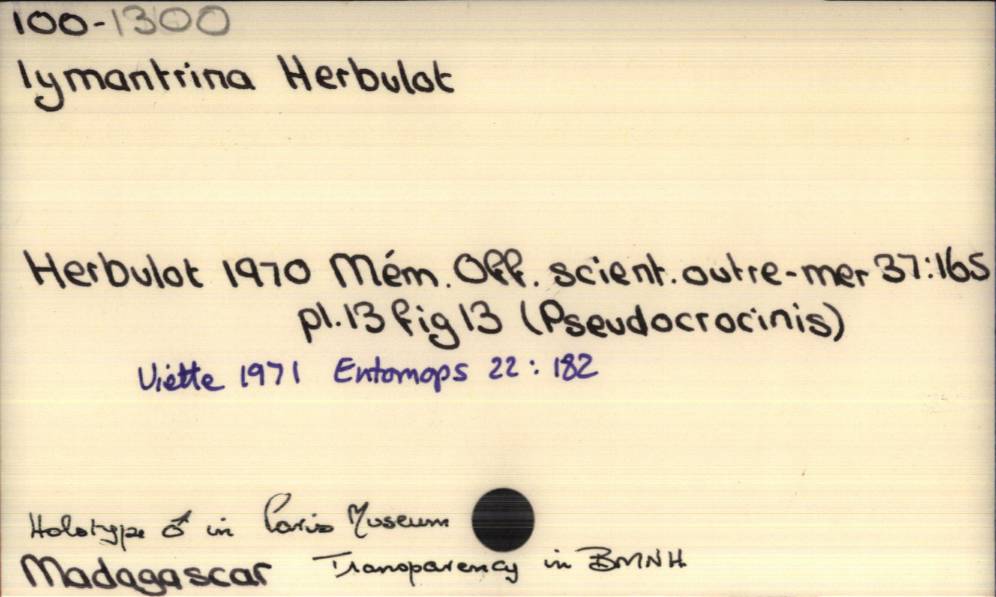 100-1300
lymantrina Herbulot
Herbulot 1970 Mém. Off. scient. outre-mer 37:165
pl. 13 fig 13 (Pseudocrocinis)
Viette 1971 Entomops 22: 182
Holotype ♂ in Paris Museum
Madagascar Transparency in BMNH